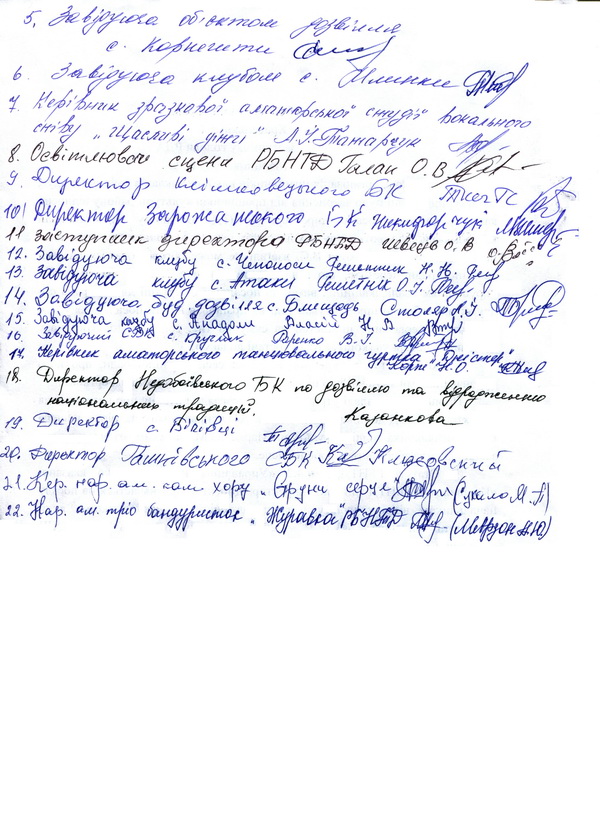 5. Завідуюча об'єктом дозвілля
с. Корнешти
6. Завідуюча клубом с. Млинки
7. Керівник зразкової аматорської студії вокального
співу „Щасливі діти" Л.І. Татарчук
8. Освітлювач сцени РБНТД Галан О.В.
9. Директор Клішковецького БК
10. Директор Зарожанського БК Никифорчук
11 Заступник директора РБНТД Шевців О.В
12. Завідуюча клубу с. Чепоноси Гешетник Н.Н.
13. Завідуюча клубу с. Атаки Решетнік О.І.
14. Завідуюча буд дозвілля с. Блищадь Столяр А.У.
15. Завідуюча клубу с. Анадоли Власій Н В
16. Завідуючий СБК с. Круглик Ренко В.Г.
17. Керівник аматорського танцювального гуртка „Дністер"
Н.О.
18. Директор Недобоївського БК по дозвіллю та відродженню
національних традицій. Казанкова
19. Директор с. Вілівці
20. Директор Ташківського СБК
21. Кер. нар. ам. хору „Струни серця" (Сукало М. А)
22. Нар. ам. тріо бандуристок „Журавка" РБНТД